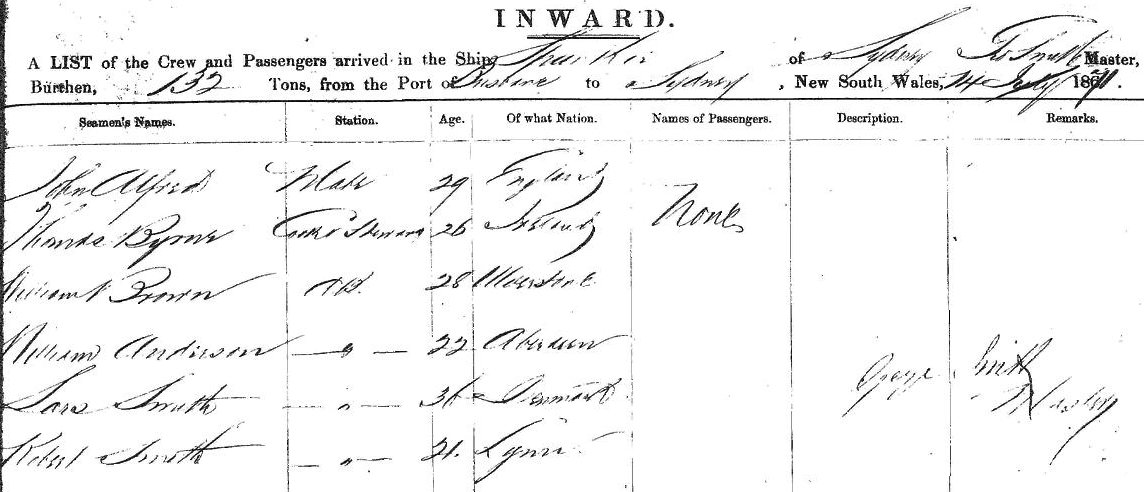 INWARD.
A LIST of the Crew and Passengers arrived in the Ship of Sydney Smith Master,
Burthen, 132 Tons, from the Port of Brisbane to Sydney, New South Wales, 14 July 18
Seamen's Names. Station. Age. Of what Nation. Names of Passengers. Description. Remarks.
John Alfred Mate 29 England
Thomas Byrne Cook & Steward 26 Ireland None
William Brown AB. 28 
William Anderson — " — 22 Aberdeen
Lars Smith — " — 36 Denmark George Smith
Master
Robert Smith — " — 21. Lynn